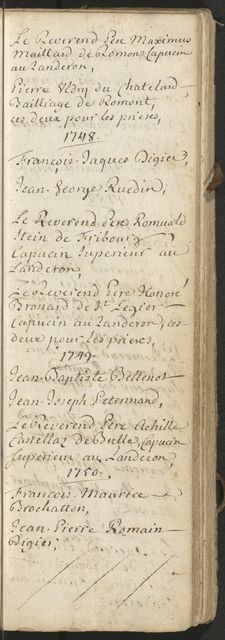 Le Reverend Pere Maximus
Maillard de Romont Capucin
au Landeron,
Pierre Uldrij du Chatelard,
Bailliage de Romont,
ces deux pour les prieres,
1748.
François-Jaques Digier,
Jean-George Ruedin,
Le Reverend Pere Romuald
Stein de Fribourg
Capucin Superieur au
Landeron,
Le Reverend Pere Honoré
Bronard de St. Legier
Capucin au Landeron, ces
deux pour les prieres,
1749.
Jean-Baptiste Bellenot
Jean-Joseph Petermand,
Le Reverend Pere Achille
Castellaz de Bulle, Capucin
Superieur au Landeron,
1750.
François-Maurice
Brochatton,
Jean-Pierre Romain
Digier,